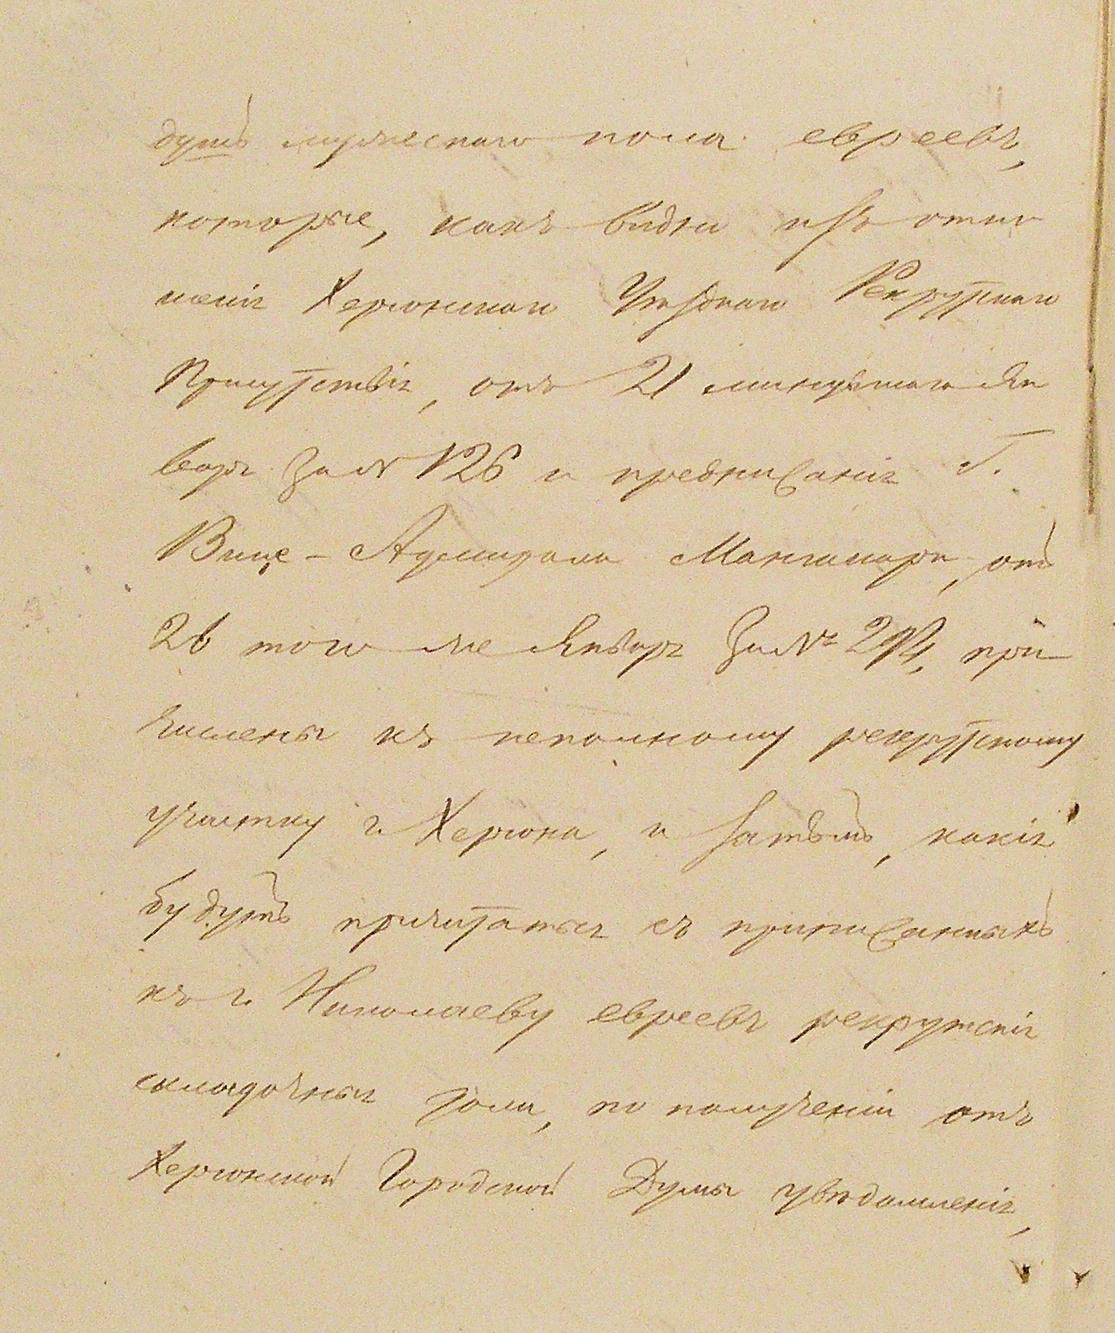 душъ мужескаго пола евреевъ,
которые, какъ видно изъ отно
шенія Херсонскаго Уѣзднаго Рекрутскаго
Присутствія, отъ 21 минувшаго Ян
варя за № 126 и предписанія Г.
Вице-Адмирала Манганари, отъ
26 того же Января за № 294, при
числены къ неполному рекрутскому
участку г. Херсона, и затѣмъ, какія
будутъ причитаться съ приписанныхъ
къ г. Николаеву евреевъ рекрутскія
складочныя доли, по полученіи отъ
Херсонской Городской Думы увѣдомленія,